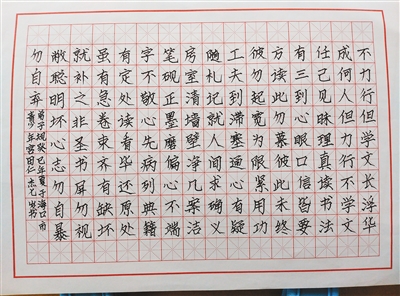 不力行但学文长浮华
成何人但力行不学文
任己见昧理真读书法
有三到心眼口信皆要
方读此勿慕彼此未终
彼勿起宽为限紧用功
工夫到滞塞通心有疑
随札记就人问求确义
房室清墙壁净几案洁
笔砚正墨磨偏心不端
字不敬心先病列典籍
有定处读看毕还原处
虽有急卷束齐有缺坏
就补之非圣书屏勿视
蔽聪明坏心志勿自暴
勿自弃
弟子规癸巳年夏于海口市
青少年宫田仁杰七岁书